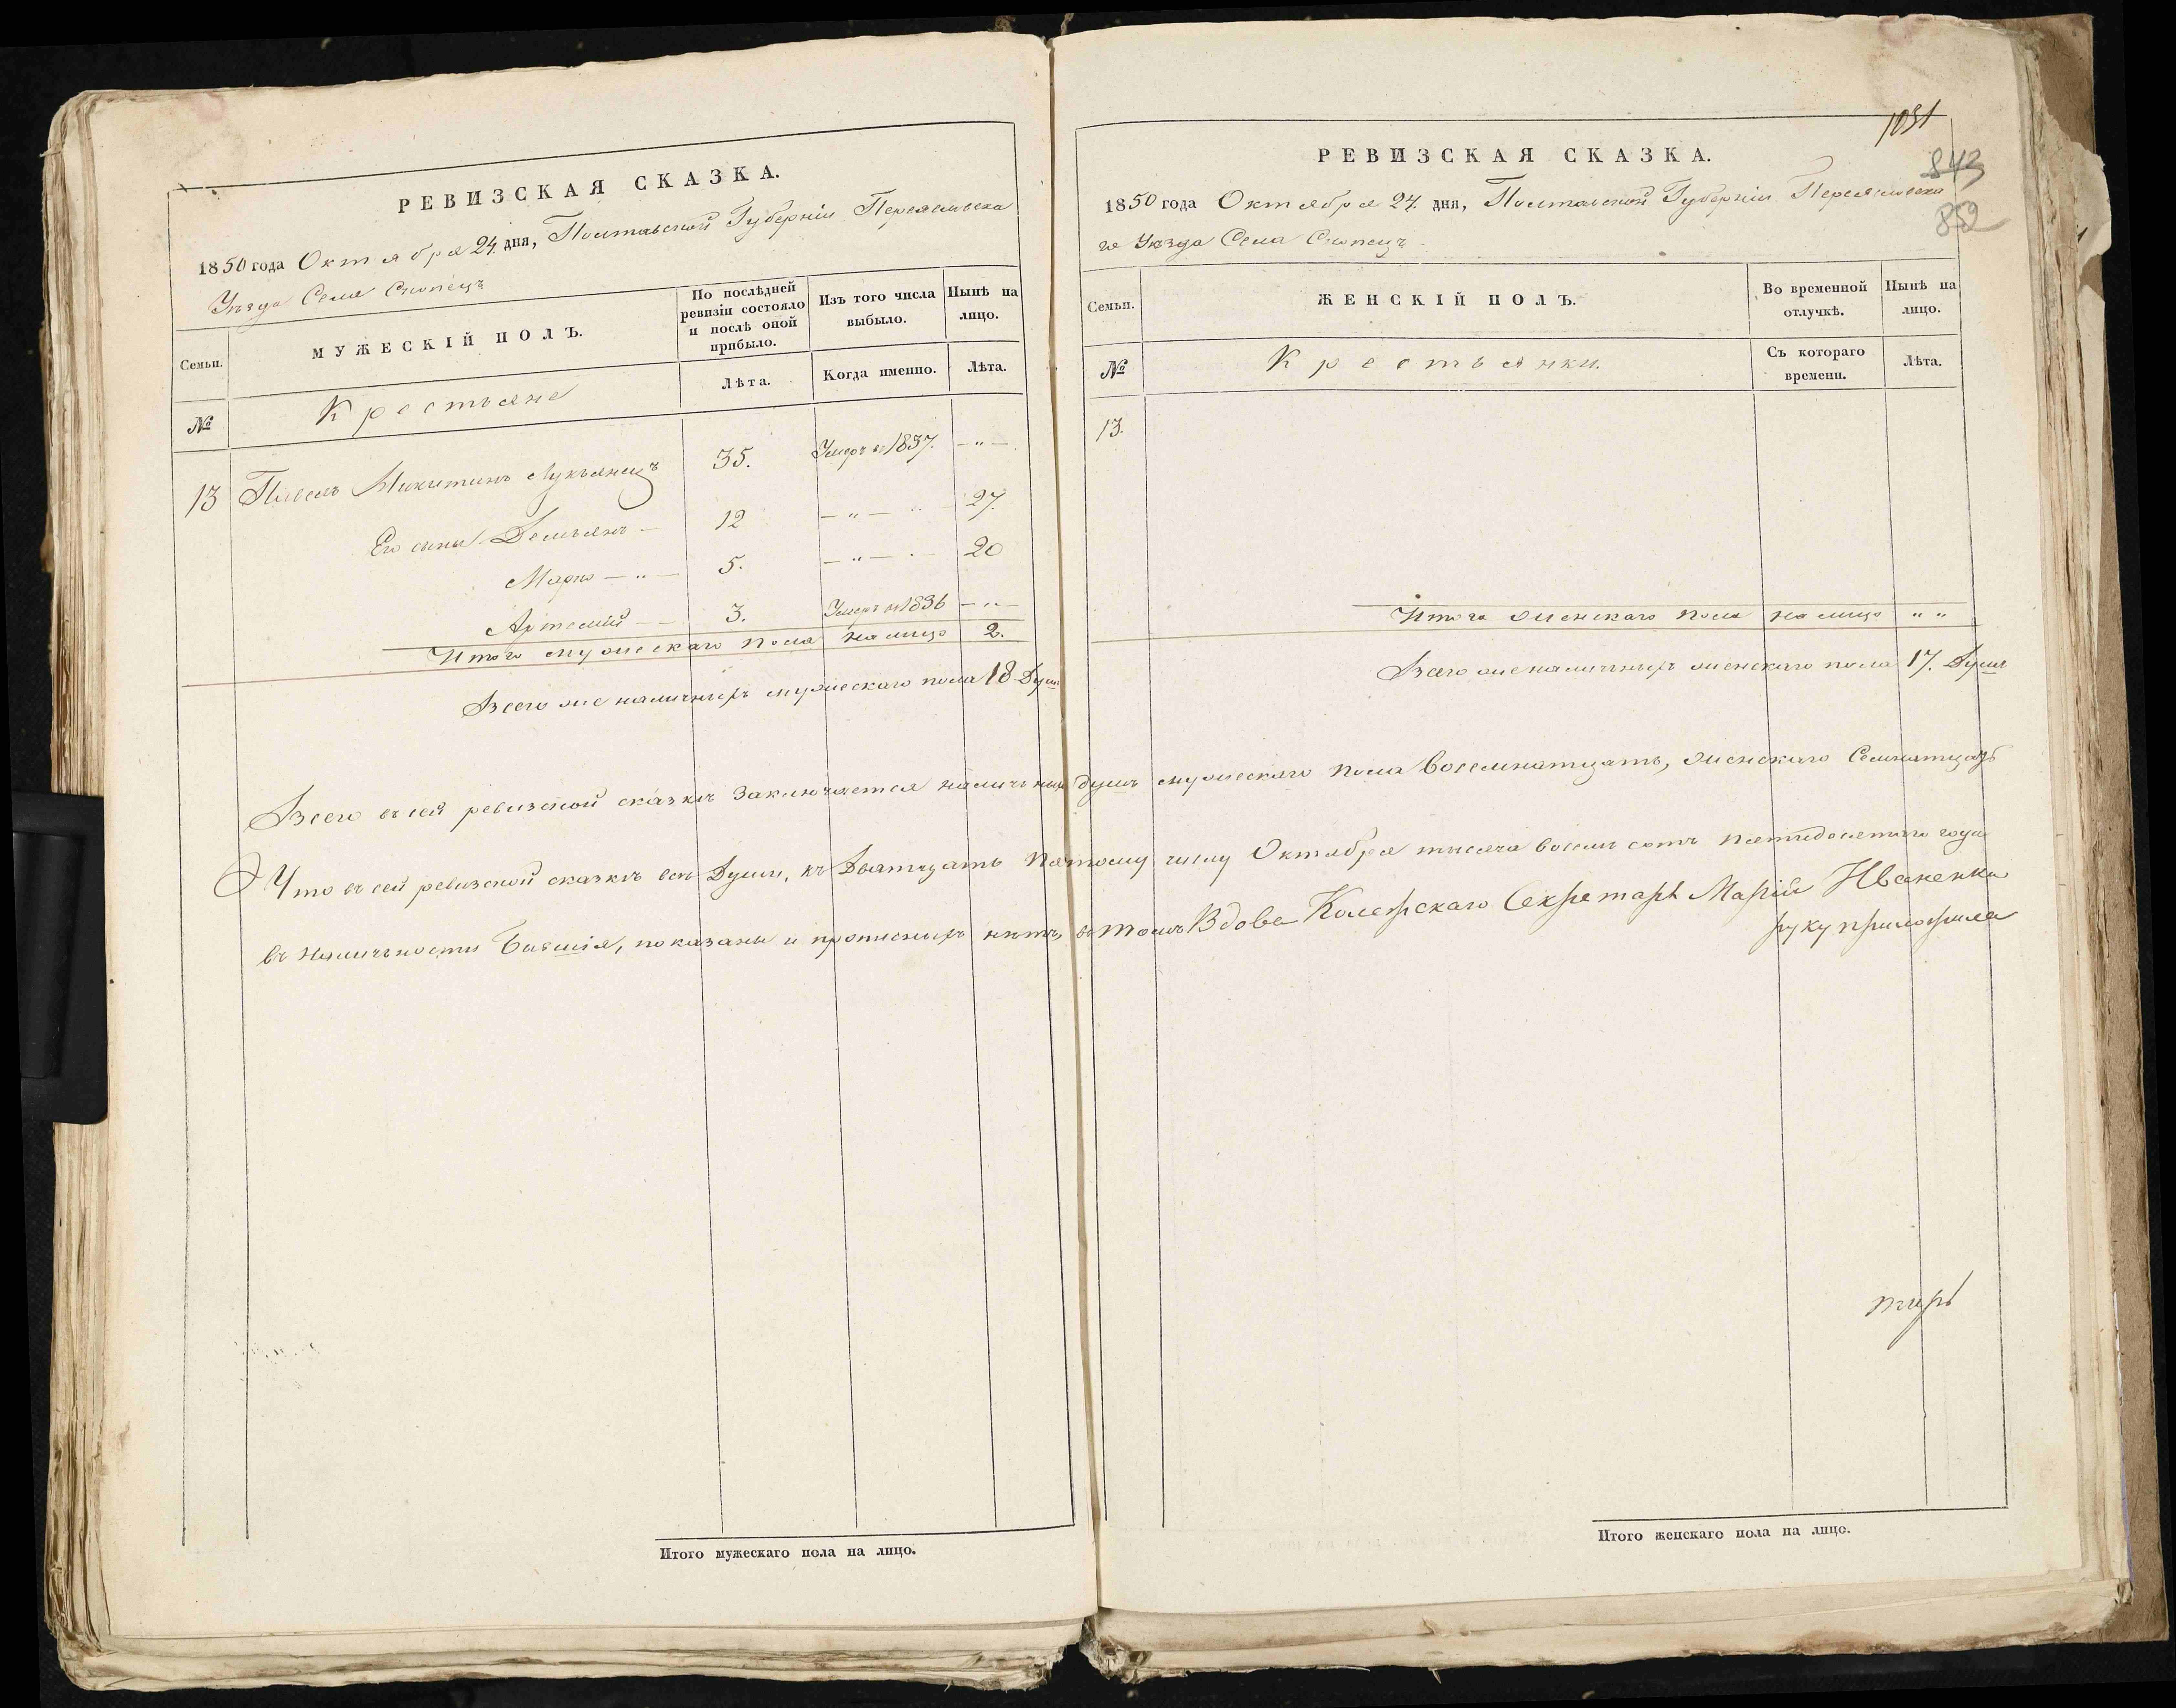 РЕВИЗСКАЯ СКАЗКА.
1850 года Октября 24 дня, Полтавской Губерніи Переяславска
Уѣзда Села Снопецъ
Семьи.
МУЖЕСКІЙ ПОЛЪ.
По послѣдней ревизіи состояло и послѣ оной прибыло.
Изъ того числа выбыло.
Нынѣ на лицо.
№
Крестьяне
Лѣта.
Когда именно.
Лѣта.
13 Павелъ Никитинъ Лукьянецъ 35. Умеръ въ 1837. — " —
Его сыны Демьянъ — 12 — " — 27.
Марко — " — 5. — " — 20
Артемій — — 3. Умеръ въ 1836 — " —
Итого мужескаго пола на лицо 2.
Всего же наличныхъ мужескаго пола 18 Душъ
1031
843
852
РЕВИЗСКАЯ СКАЗКА.
1850 года Октября 24. дня, Полтавской Губерніи Переяславска
го Уѣзда Села Снопецъ
Семьи.
ЖЕНСКІЙ ПОЛЪ.
Во временной отлучкѣ.
Нынѣ на лицо.
№
Крестьянки.
Съ котораго времени.
Лѣта.
13.
Итого женскаго пола на лицо " "
Всего же наличныхъ женскаго пола 17. Душъ
Всего въ сей ревизской сказкѣ заключается наличныхъ душъ мужескаго пола восемнатцать, женскаго Семнатцать
Что въ сей ревизской сказкѣ всѣ Души, къ Дватцать пятому числу Октября тысяча восемь сотъ пятидесятого года
въ наличности Бывшія, показаны и прописныхъ нѣтъ, въ томъ Вдова Колежскаго Секретаря Марія Иваненкова
руку приложила
Итого мужескаго пола на лицо.
Итого женскаго пола на лицо.